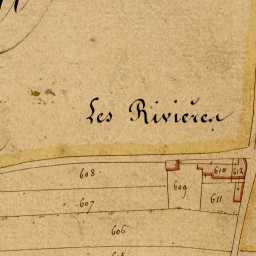 Les Rivières
608 610 612
609
607 611
606